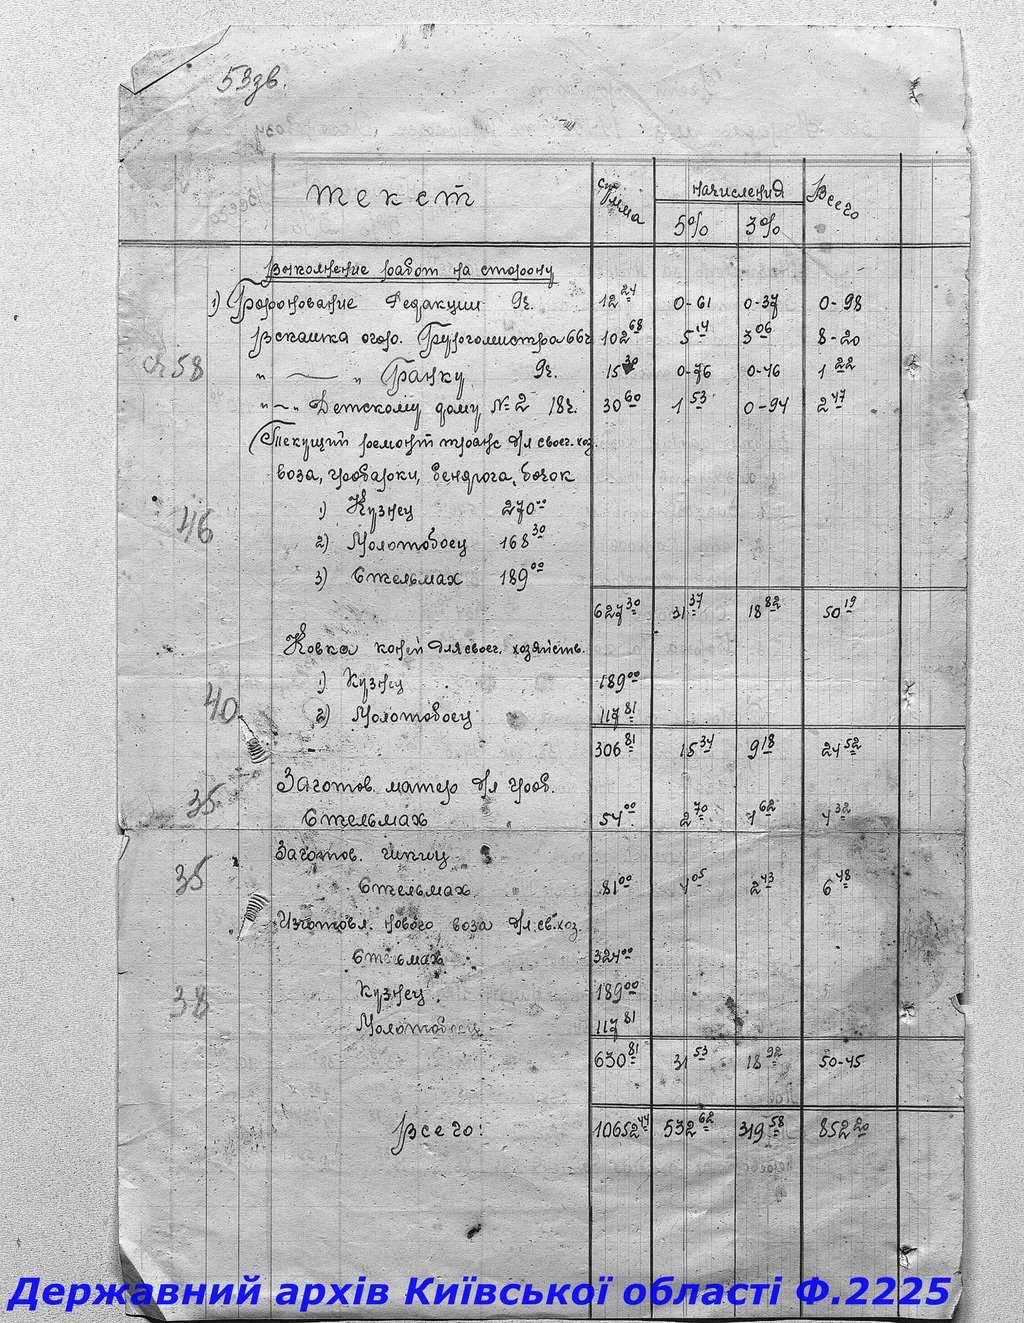 53зв.
Текст Сумма начисления Всего
5% 3%
Выполнение работ на сторону
1) Боронование Редакции 9г. 12 24 0-61 0-37 0-98
Вспашка огор. Бургомистра 66г 102 68 5 14 3 06 8-20
сч 58 " — " Банку 9г. 15 30 0-76 0-46 1 22
" — " Детскому дому № 2 18г. 30 60 1 53 0-94 2 47
Текущий ремонт транс для своег. хоз.
воза, грабарки, бендюга, бочок
46 1) Кузнец 270 00
2) Молотобоец 168 30
3) Стельмах 189 00
627 30 31 37 18 82 50 19
Ковка коней для своег. хозяйств.
1) Кузнец 189 00
40 2) Молотобоец 117 81
306 81 15 34 9 18 24 52
Заготов. матер для граб.
35 Стельмах 54 00 2 70 1 62 4 32
Заготов.
35 Стельмах 81 00 4 05 2 43 6 48
Изготовл. нового воза для св. хоз.
Стельмах 324 00
38 Кузнец. 189 00
Молотобоец 117 81
630 81 31 53 18 92 50-45
Всего: 10652 44 532 62 319 58 852 20
Державний архів Київської області Ф.2225